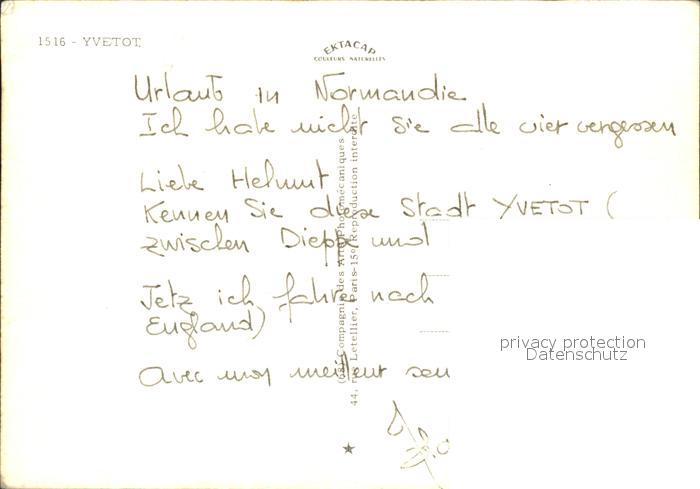 1516 - YVETOT
EKTACAP
COULEURS NATURELLES
Urlaub in Normandie
Ich habe nicht Sie alle vier vergessen
Liebe Helmut
Kennen Sie diese Stadt YVETOT (
zwischen Dieppe und
Jetz ich fahre nach
England)
Avec mon meilleur sou
Compagnie des Arts Photomécaniques
44, rue Letellier, Paris-15e Reproduction interdite
privacy protection
Datenschutz